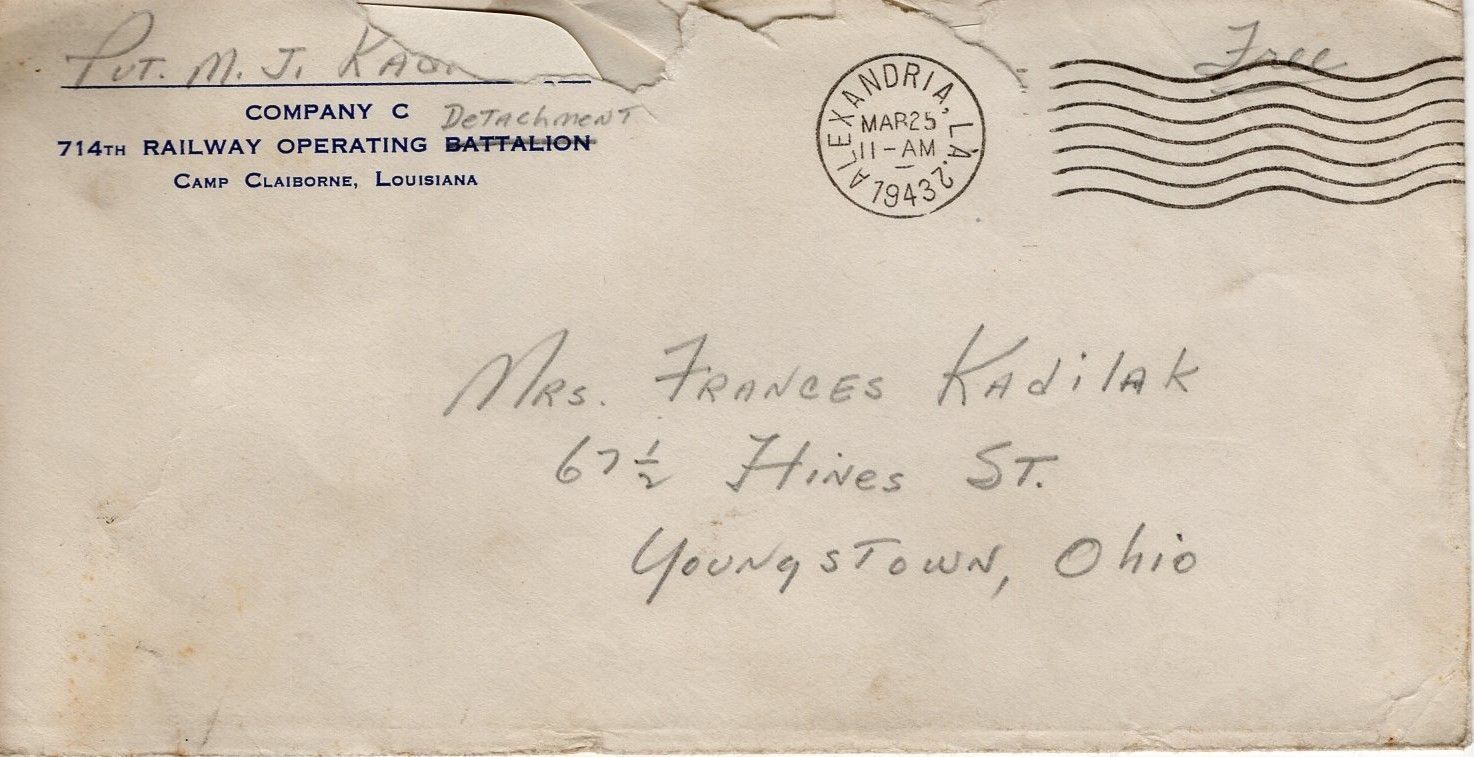 Pvt. M. J.
COMPANY C Detachment
714TH RAILWAY OPERATING BATTALION
CAMP CLAIBORNE, LOUISIANA
ALEXANDRIA, LA. 2
MAR 25
11-AM
1943
Free
Mrs. Frances Kadilak
67 1/2 Hines St.
Youngstown, Ohio